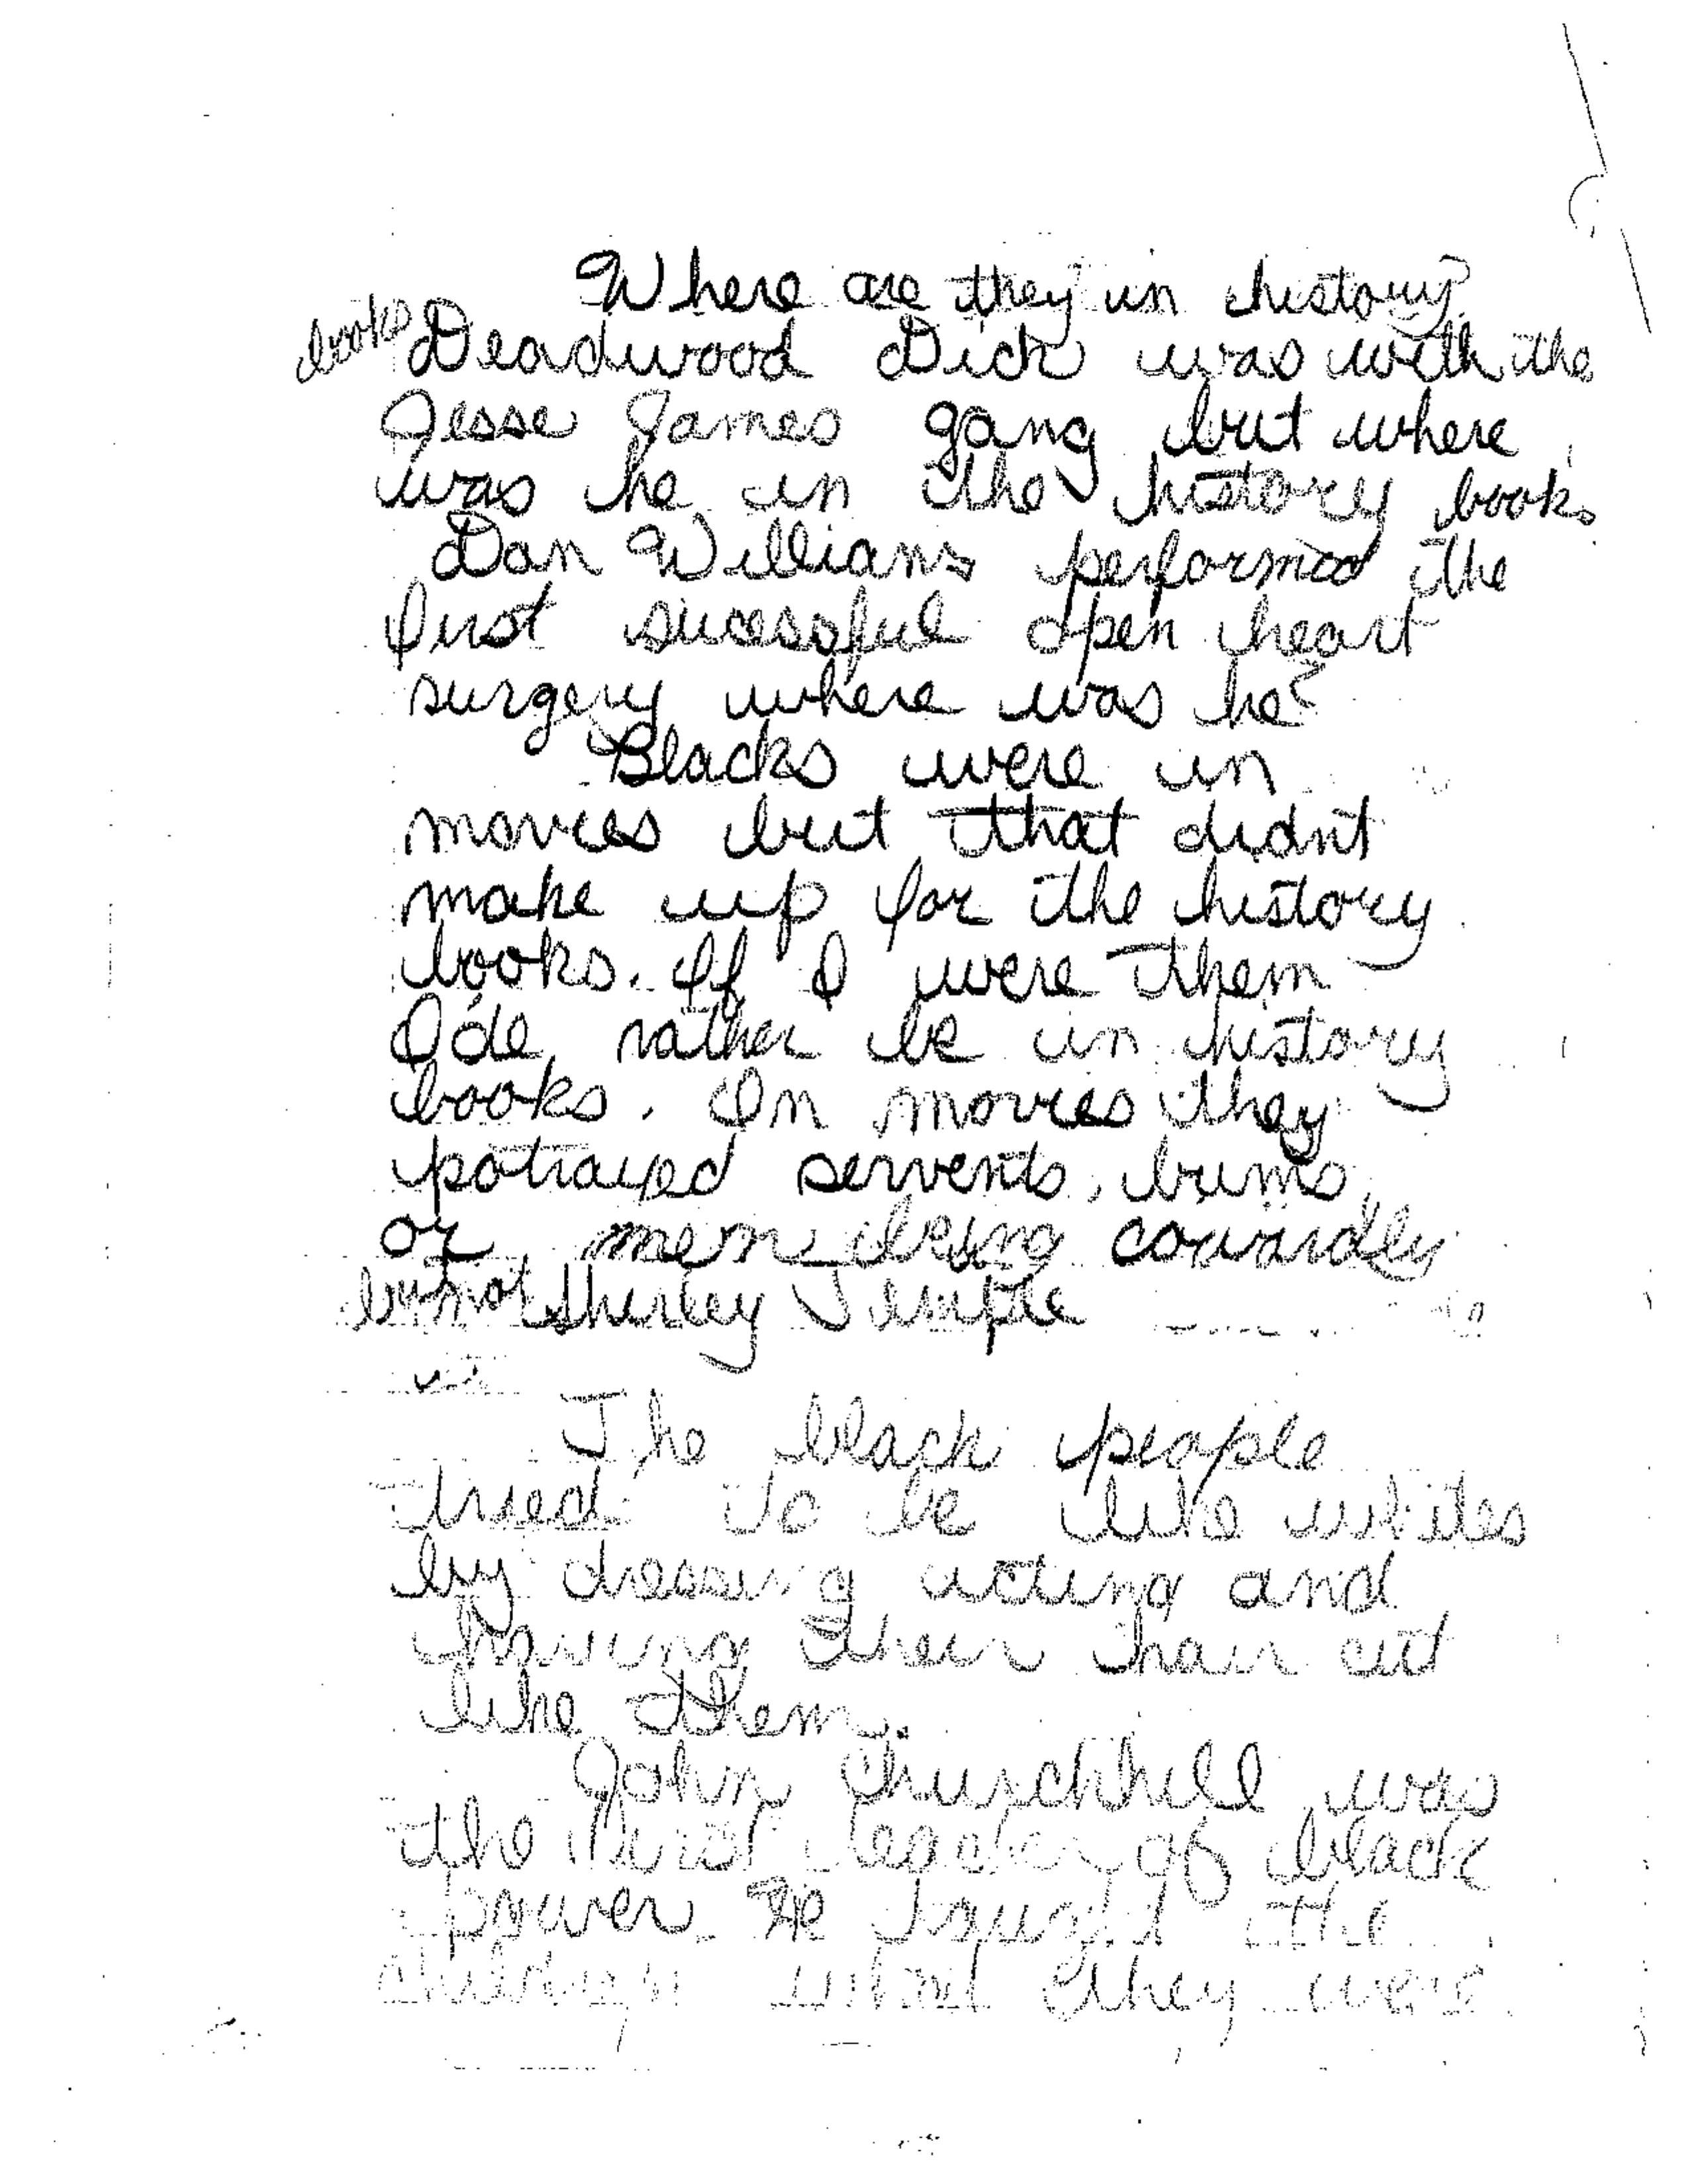 Where are they in history?
books Deadwood Dick was with the
Jesse James gang but where
was he in the history books
Dan Willians performed the
first sucessful open heart
surgery where was he?
Blacks were in
movies but that didnt
make up for the history
books. If I were them
I'de rather be in history
books. In movies they
potrayed servents, bums,
or men being cowardly
but not Shirley Temple
The black people
tried to be like whites
by dressing acting and
having their hair cut
like them.
John Churchhill was
the first leader of black
power. He taught the
children what they were